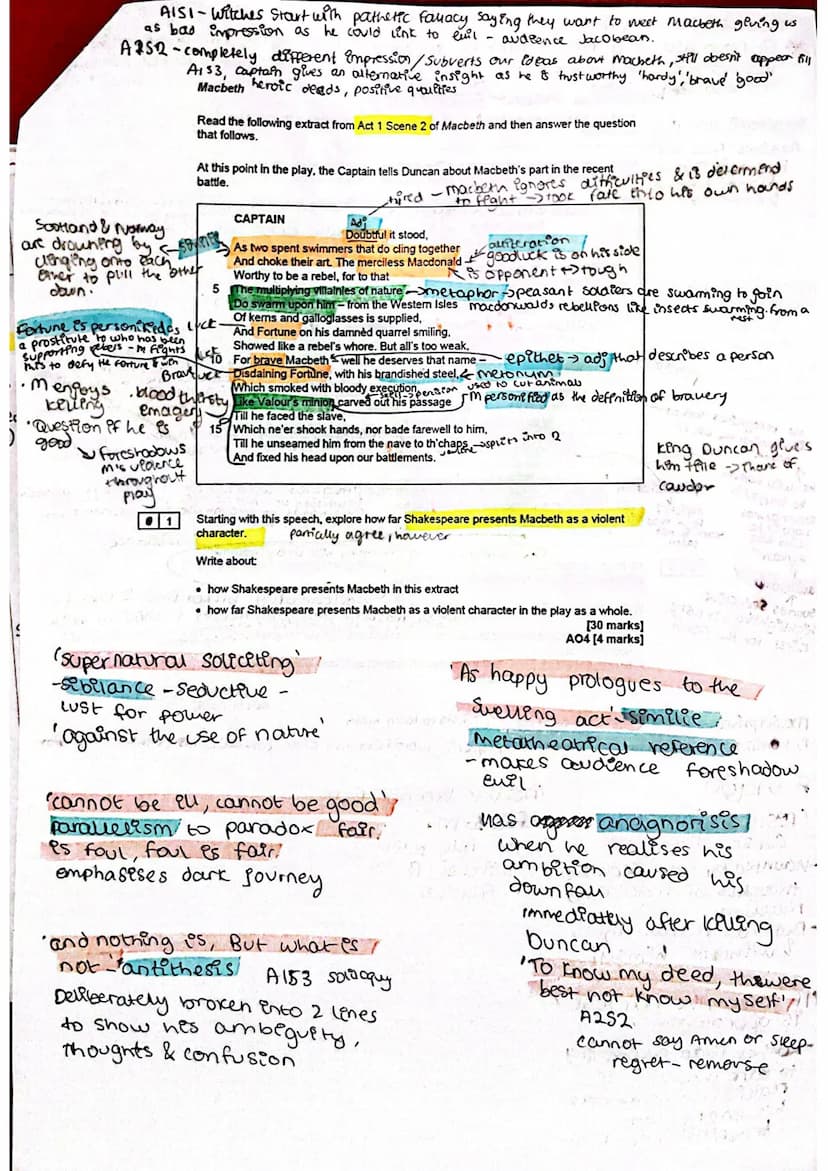 A1S1 - witches start with pathetic fallacy saying they want to meet Macbeth giving us
as bad impression as he could link to evil - audience Jacobean.
A2S2 - completely different impression/subverts our ideas about Macbeth, still doesn't appear till
A1S3, captain gives an alternative insight as he is trustworthy 'hardy', 'brave' 'good'
Macbeth heroic deeds, positive qualities
Read the following extract from Act 1 Scene 2 of Macbeth and then answer the question
that follows.
At this point in the play, the Captain tells Duncan about Macbeth's part in the recent
battle.
tired - macbeth ignores difficulties & is determend
to fight → took fate into his own hands
CAPTAIN
Adj
Doubtful it stood,
As two spent swimmers that do cling together
And choke their art. The merciless Macdonald
Worthy to be a rebel, for to that
5 The multiplying villainies of nature
Do swarm upon him – from the Western Isles
Of kerns and galloglasses is supplied,
And Fortune on his damnèd quarrel smiling,
Showed like a rebel's whore. But all's too weak,
10 For brave Macbeth – well he deserves that name –
Disdaining Fortune, with his brandished steel,
Which smoked with bloody execution,
Like Valour's minion carved out his passage
Till he faced the slave,
15 Which ne'er shook hands, nor bade farewell to him,
Till he unseamed him from the nave to th'chaps,
And fixed his head upon our battlements.
Scotland & Norway
are drowning by
clinging onto each
other to pull the other
down.
simile
alliteration
goodluck is on his side
is opponent → tough
metaphor → peasant soldiers are swarming to join
macdonwalds rebellions like insects swarming from a
nest
Fortune is personified as
a prostitute to who has been
supporting rebels - M fights
his to defy the fortune & win
luck
luck
Brave
epithet → adj that describes a person
metonym
used to cut animals
M personified as the definition of bravery
· M enjoys
killing
· Question if he is
good
foreshadows
M's violence
throughout
play
. blood thirsty
emagery
→ splits into 2
King Duncan gives
him title → Thane of
cawdor
0 1 Starting with this speech, explore how far Shakespeare presents Macbeth as a violent
character. parically agree, however
Write about:
• how Shakespeare presents Macbeth in this extract
• how far Shakespeare presents Macbeth as a violent character in the play as a whole.
[30 marks]
AO4 [4 marks]
'supernatural soliciting'
- sibilance - seductive -
lust for power
'against the use of nature'
'cannot be ill, cannot be good'
parallelism to paradox fair
is foul, foul is fair.
emphasises dark journey
'and nothing is, But what is
not - 'antithesis A1S3 soliloquy
Deliberately broken into 2 lines
to show his ambiguity,
thoughts & confusion
'As happy prologues to the
swelling act' similie
metatheatrical reference
- makes audience foreshadow
evil.
Has anagnorisis
when he realises his
ambition caused his
downfall
immediatly after killing
Duncan
'To know my deed, thewere
best not know myself'
A2S2
cannot say Amen or sleep-
regret - remorse